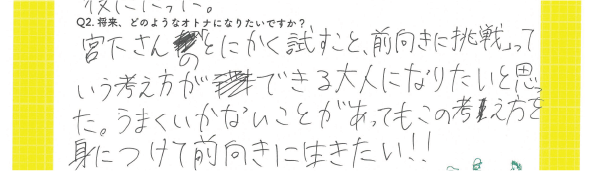 役にたった。
Q2. 将来、どのようなオトナになりたいですか？
宮下さんの「とにかく試すこと、前向きに挑戦」って
いう考え方ができる大人になりたいと思っ
た。うまくいかないことがあってもこの考え方を
身につけて前向きに生きたい!!